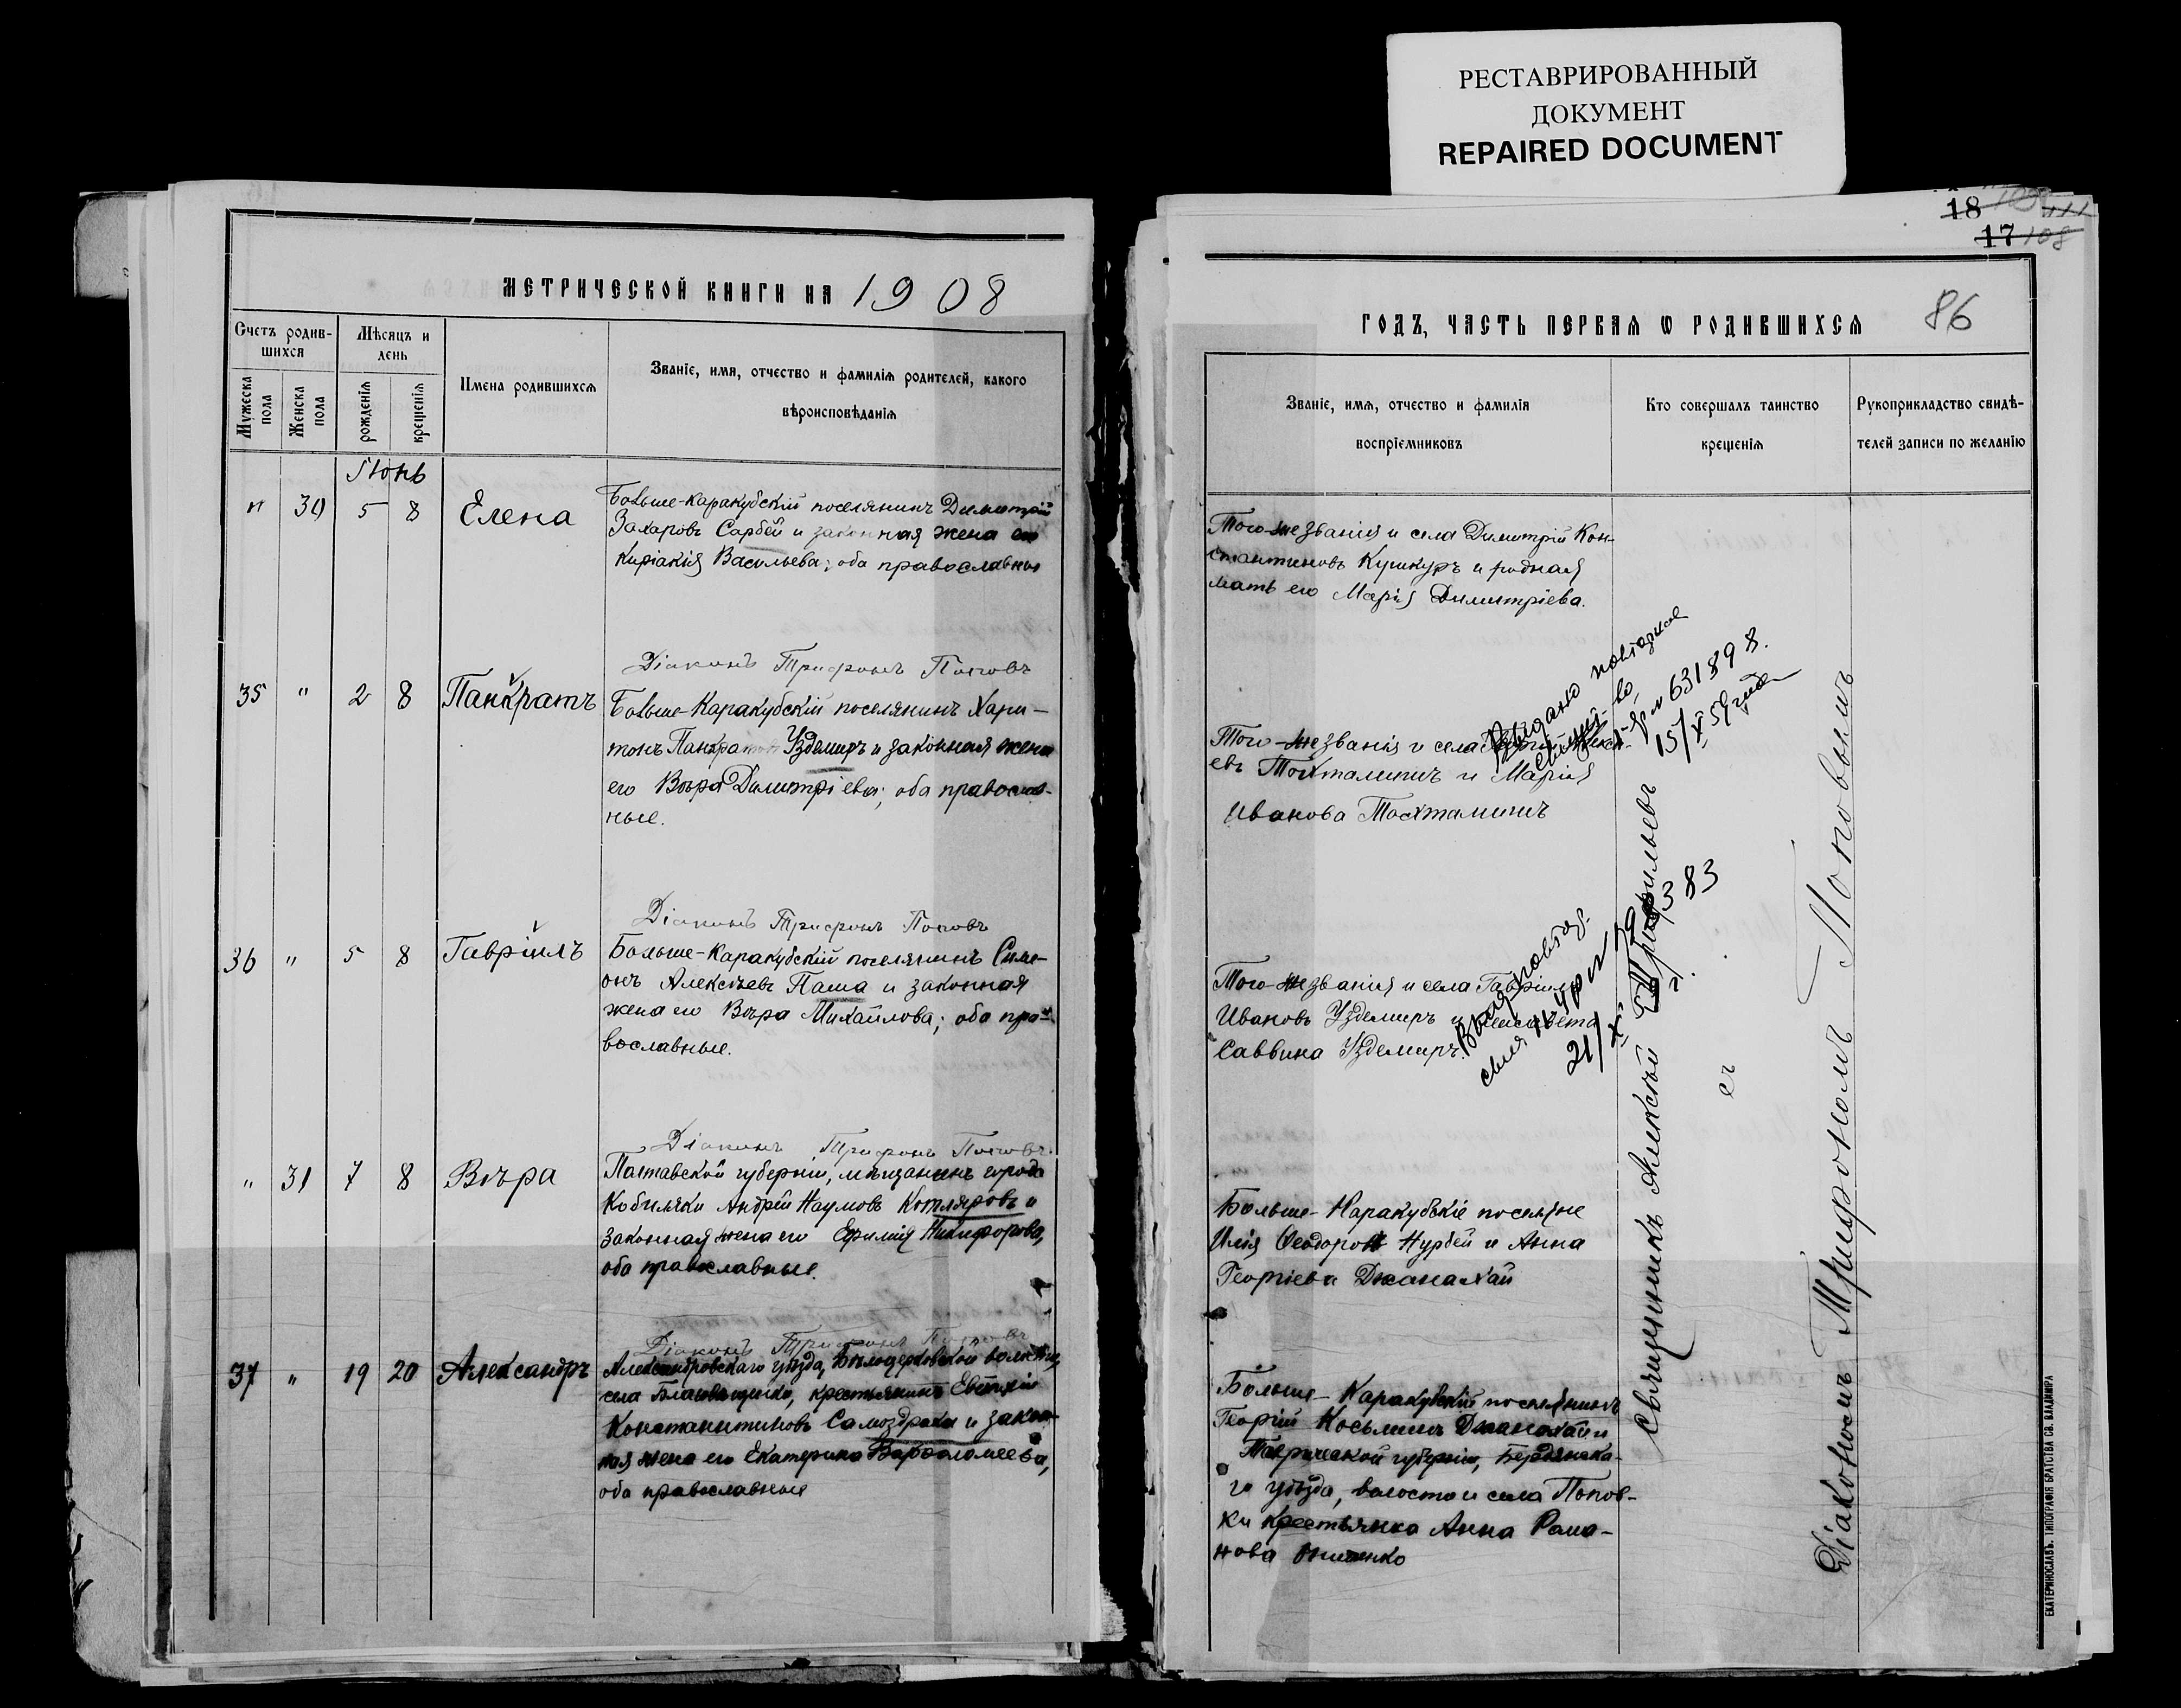 РЕСТАВРИРОВАННЫЙ
ДОКУМЕНТ
REPAIRED DOCUMENT
МЕТРИЧЕСКОЙ КНИГИ НА 1908
Счетъ родив-
шихся
Мѣсяцъ и
день
Мужеска
пола
Женска
пола
рожденія
крещенія
Имена родившихся
Званіе, имя, отчество и фамилія родителей, какого
вѣроисповѣданія
Іюнь
" 30 5 8 Елена
Больше-Каракубскій поселянинъ Димитрій
Захаровъ Сарбей и законная жена его
Киріакія Васильева; оба православные
Діаконъ Трифонъ Поповъ
35 " 2 8 Панкратъ
Больше-Каракубскій поселянинъ Хари-
тонъ Панкратовъ Уздемиръ и законная жена
его Вѣра Димитріева; оба православ-
ные.
Діаконъ Трифонъ Поповъ
36 " 5 8 Гавріилъ
Больше-Каракубскій поселянинъ Симе-
онъ Алексѣевъ Паша и законная
жена его Вѣра Михайлова; оба пра-
вославные.
Діаконъ Трифонъ Поповъ
" 31 7 8 Вѣра
Полтавской губерніи, мѣщанинъ города
Кобиляки Андрей Наумовъ Котляровъ и
законная жена его Ефимія Никифорова,
оба православные.
Діаконъ Трифонъ Поповъ
37 " 19 20 Александръ
Александровскаго уѣзда, Бѣлоцерковской волости,
села Благовѣщенки, крестьянинъ Евтихій
Константиновъ Самоздрака и закон-
ная жена его Екатерина Варѳоломеева,
оба православные
18 111
17 108
86
ГОДЪ, ЧАСТЬ ПЕРВАЯ Ѡ РОДИВШИХСЯ
Званіе, имя, отчество и фамилія
воспріемниковъ
Кто совершалъ таинство
крещенія
Рукоприкладство свидѣ-
телей записи по желанію
Того-же званія и села Димитрій Кон-
стантиновъ Кушкуръ и родная
мать его Марія Димитріева.
Того-же званія и села
евъ Тохтамишъ и Марія
Иванова Тохтамишъ
Выдано повторное
свид-во
631898.
15/X 59 года
Того-же званія и села Гавріилъ
Ивановъ Уздемиръ и Елисавета
Саввина Уздемиръ.
Выд. повтор.
383
21/X
Больше-Каракубскіе поселяне
Илія Ѳеодоровъ Нурбей и Анна
Георгіева Джанахай
Больше-Каракубскій поселянинъ
Георгій Косьминъ Джанахай и
Таврической губерніи, Бердянска-
го уѣзда, волости и села Попов-
ки крестьянка Анна Рома-
нова Онищенко
Священникъ Алексѣй
съ
Діакономъ Трифономъ Поповымъ
ЕКАТЕРИНОСЛАВЪ. ТИПОГРАФІЯ БРАТСТВА СВ. ВЛАДИМІРА